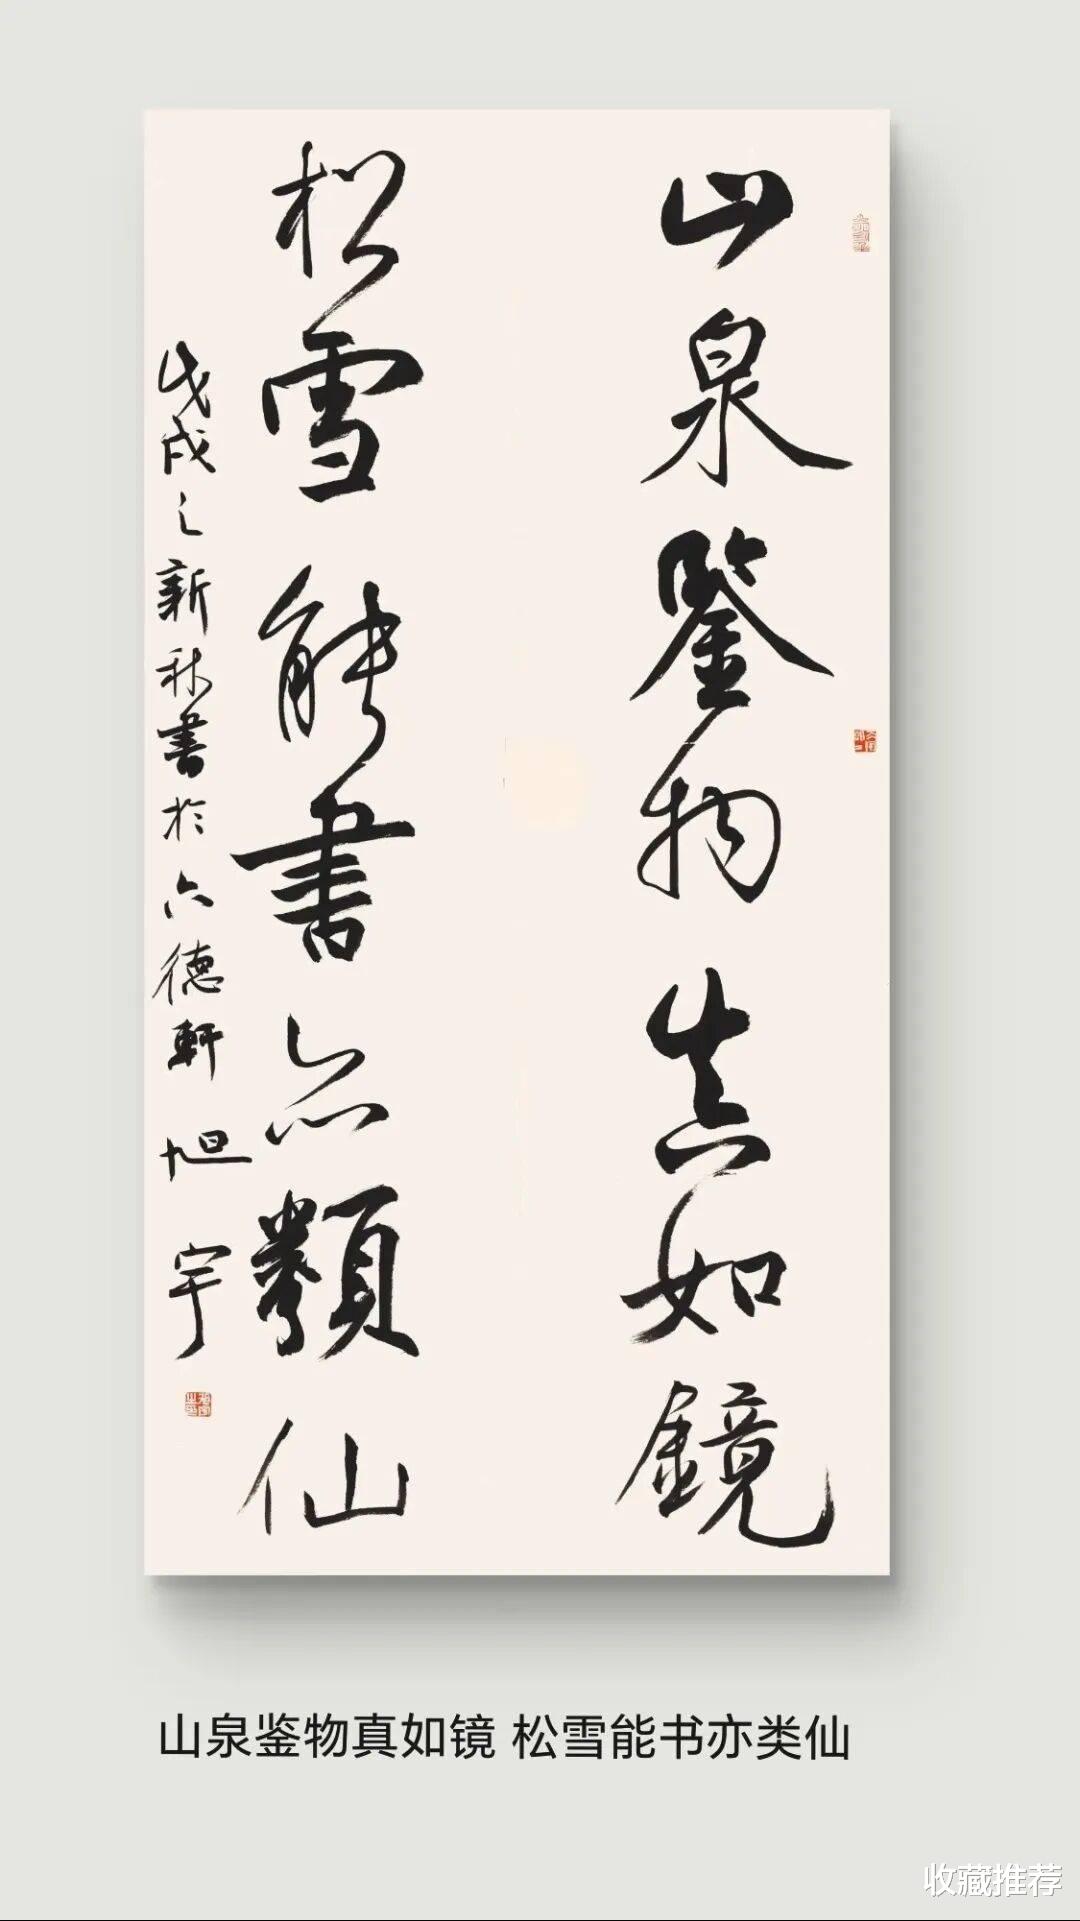 山泉鉴物真如镜
松雪能書亦類仙
戊戌之新秋書於六德軒 旭宇
山泉鉴物真如镜 松雪能书亦类仙
收藏推荐